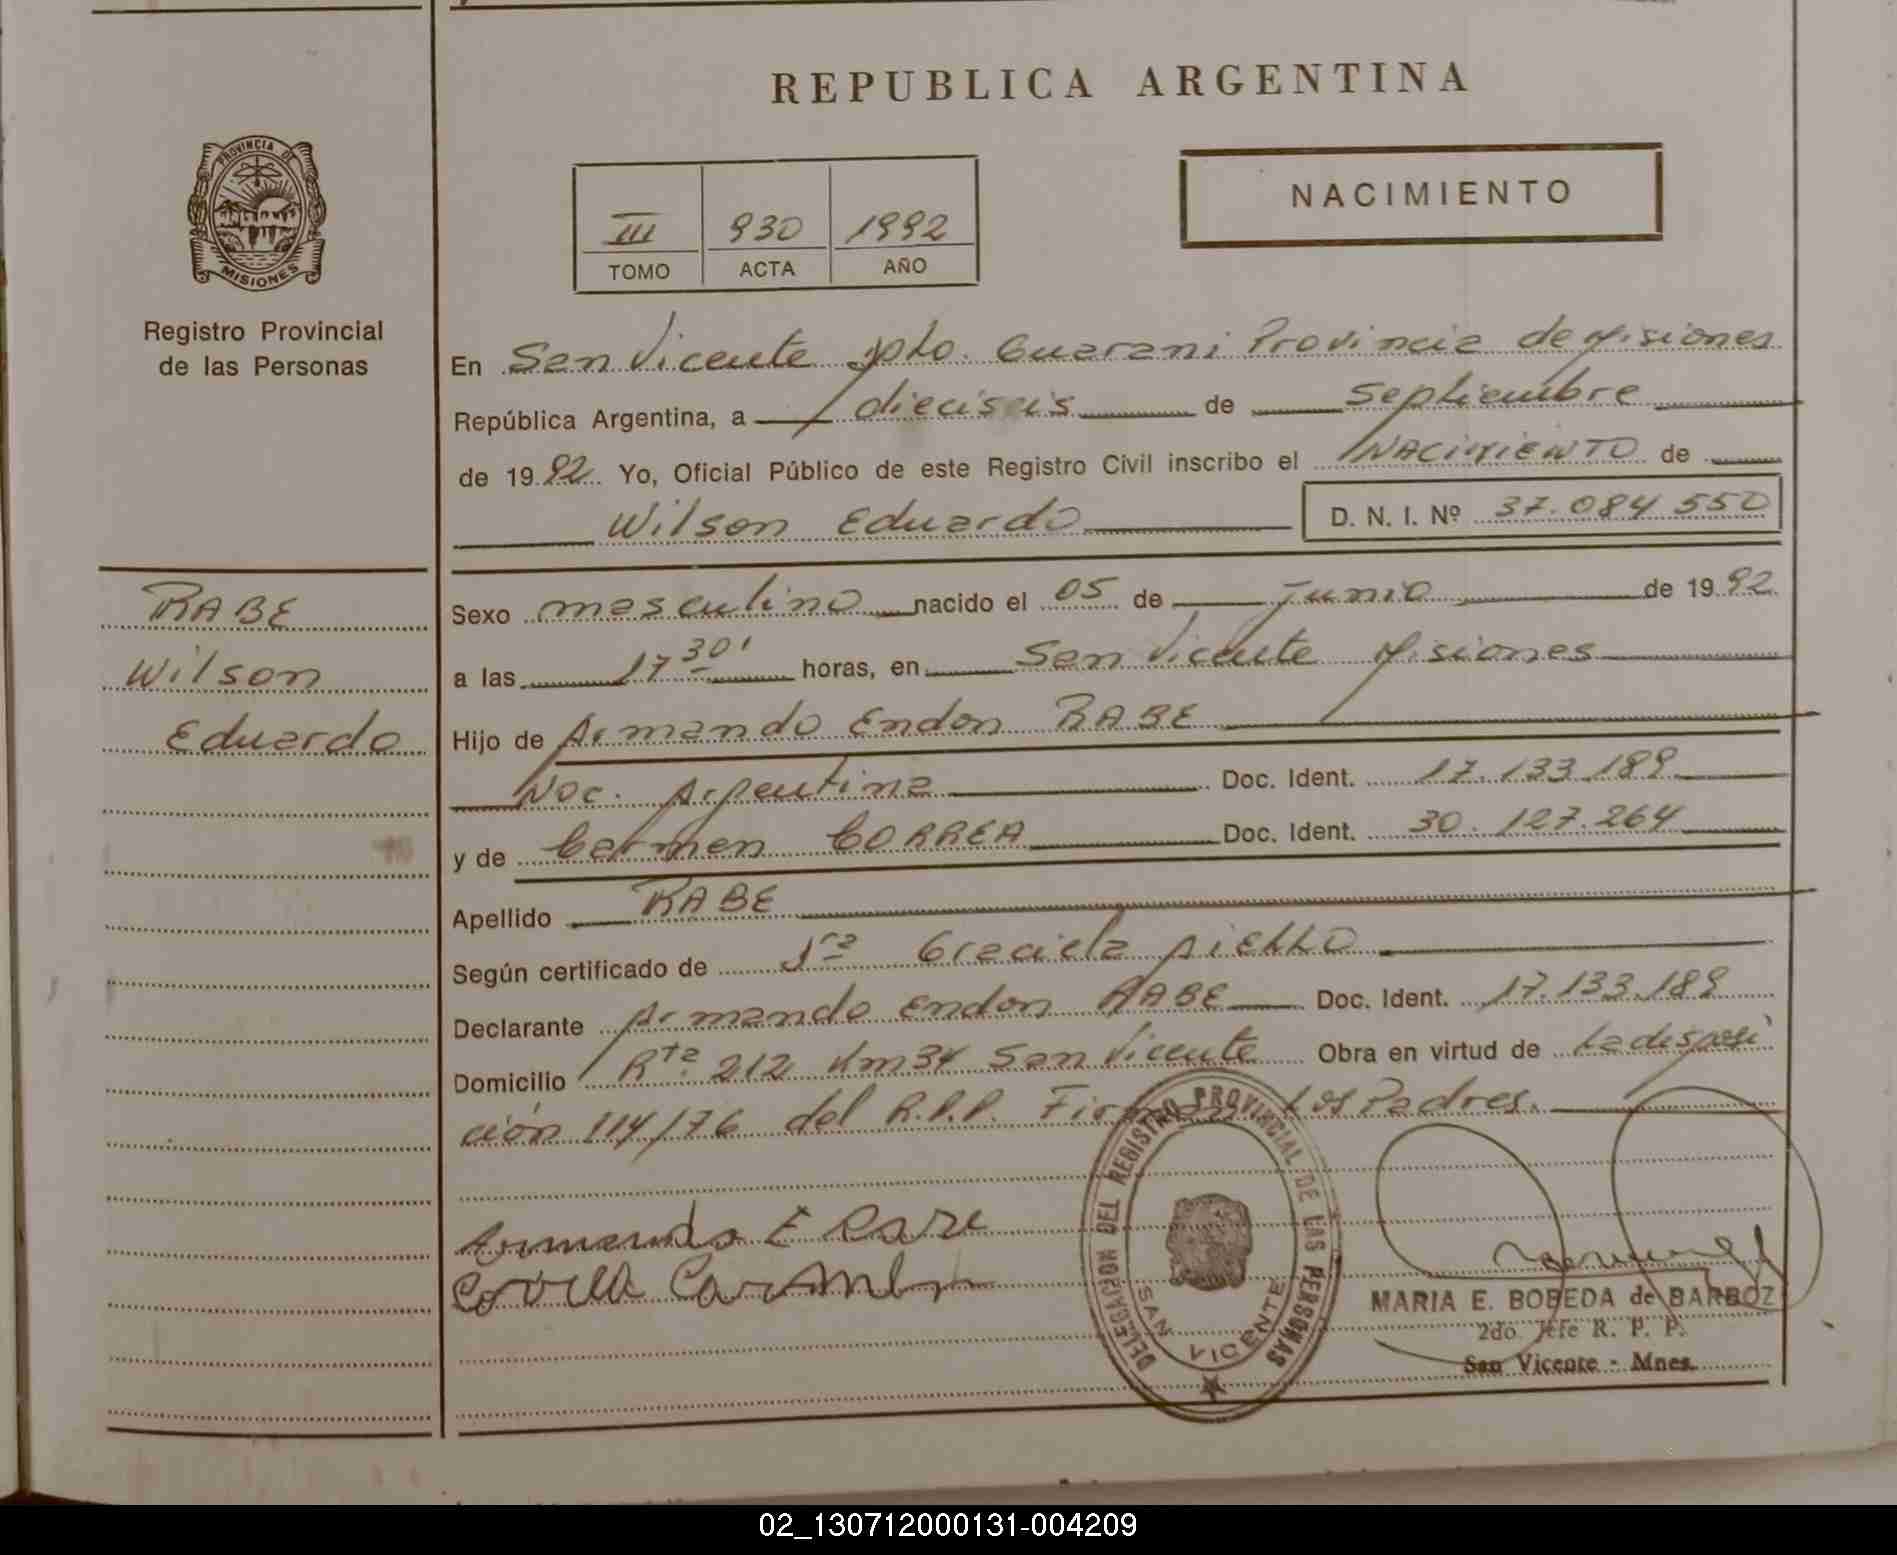 REPUBLICA ARGENTINA
PROVINCIA DE
MISIONES
Registro Provincial
de las Personas
III 930 1992
TOMO ACTA AÑO
NACIMIENTO
En San Vicente Dpto. Guarani Provincia de Misiones
República Argentina, a dieciseis de Septiembre
de 1992 Yo, Oficial Público de este Registro Civil inscribo el NACIMIENTO de
Wilson Eduardo D. N. I. Nº 37.084.550
RABE
Wilson
Eduardo
Sexo masculino nacido el 05 de Junio de 1992
a las 17 30' horas, en San Vicente Misiones
Hijo de Armando Endon RABE
Nac. Argentina Doc. Ident. 17.133.189
y de Carmen CORREA Doc. Ident. 30.127.264
Apellido RABE
Según certificado de Sra Graciela
Declarante Armando Endon RABE Doc. Ident. 17.133.189
Domicilio Rta 212 Km 34 San Vicente Obra en virtud de La disposi
ción 114/76 del R.P.P. Firman Los Padres.
Armando E Rave
Correa
DELEGACION DEL REGISTRO PROVINCIAL DE LAS PERSONAS
SAN VICENTE
MARIA E. BOBEDA de BARBOZ
2do Jefe R. P. P.
San Vicente - Mnes.
02_130712000131-004209